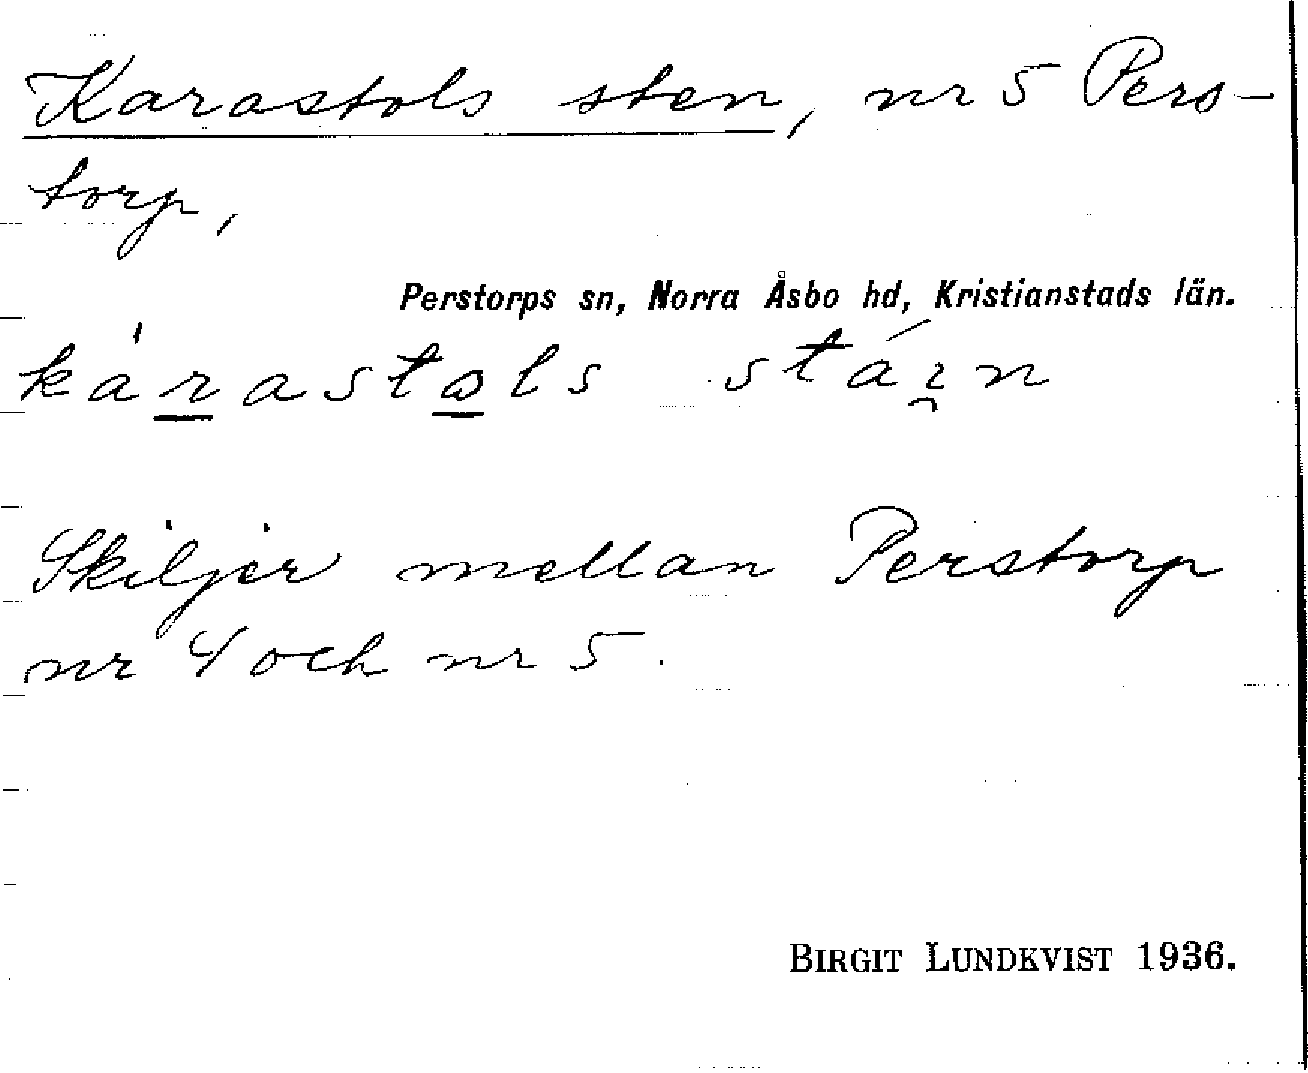 Karastols sten, nr 5 Pers-
torp,
Perstorps sn, Norra Åsbo hd, Kristianstads län.
kárastols stáɪn
Skiljer mellan Perstorp
nr 4 och nr 5.
BIRGIT LUNDKVIST 1936.